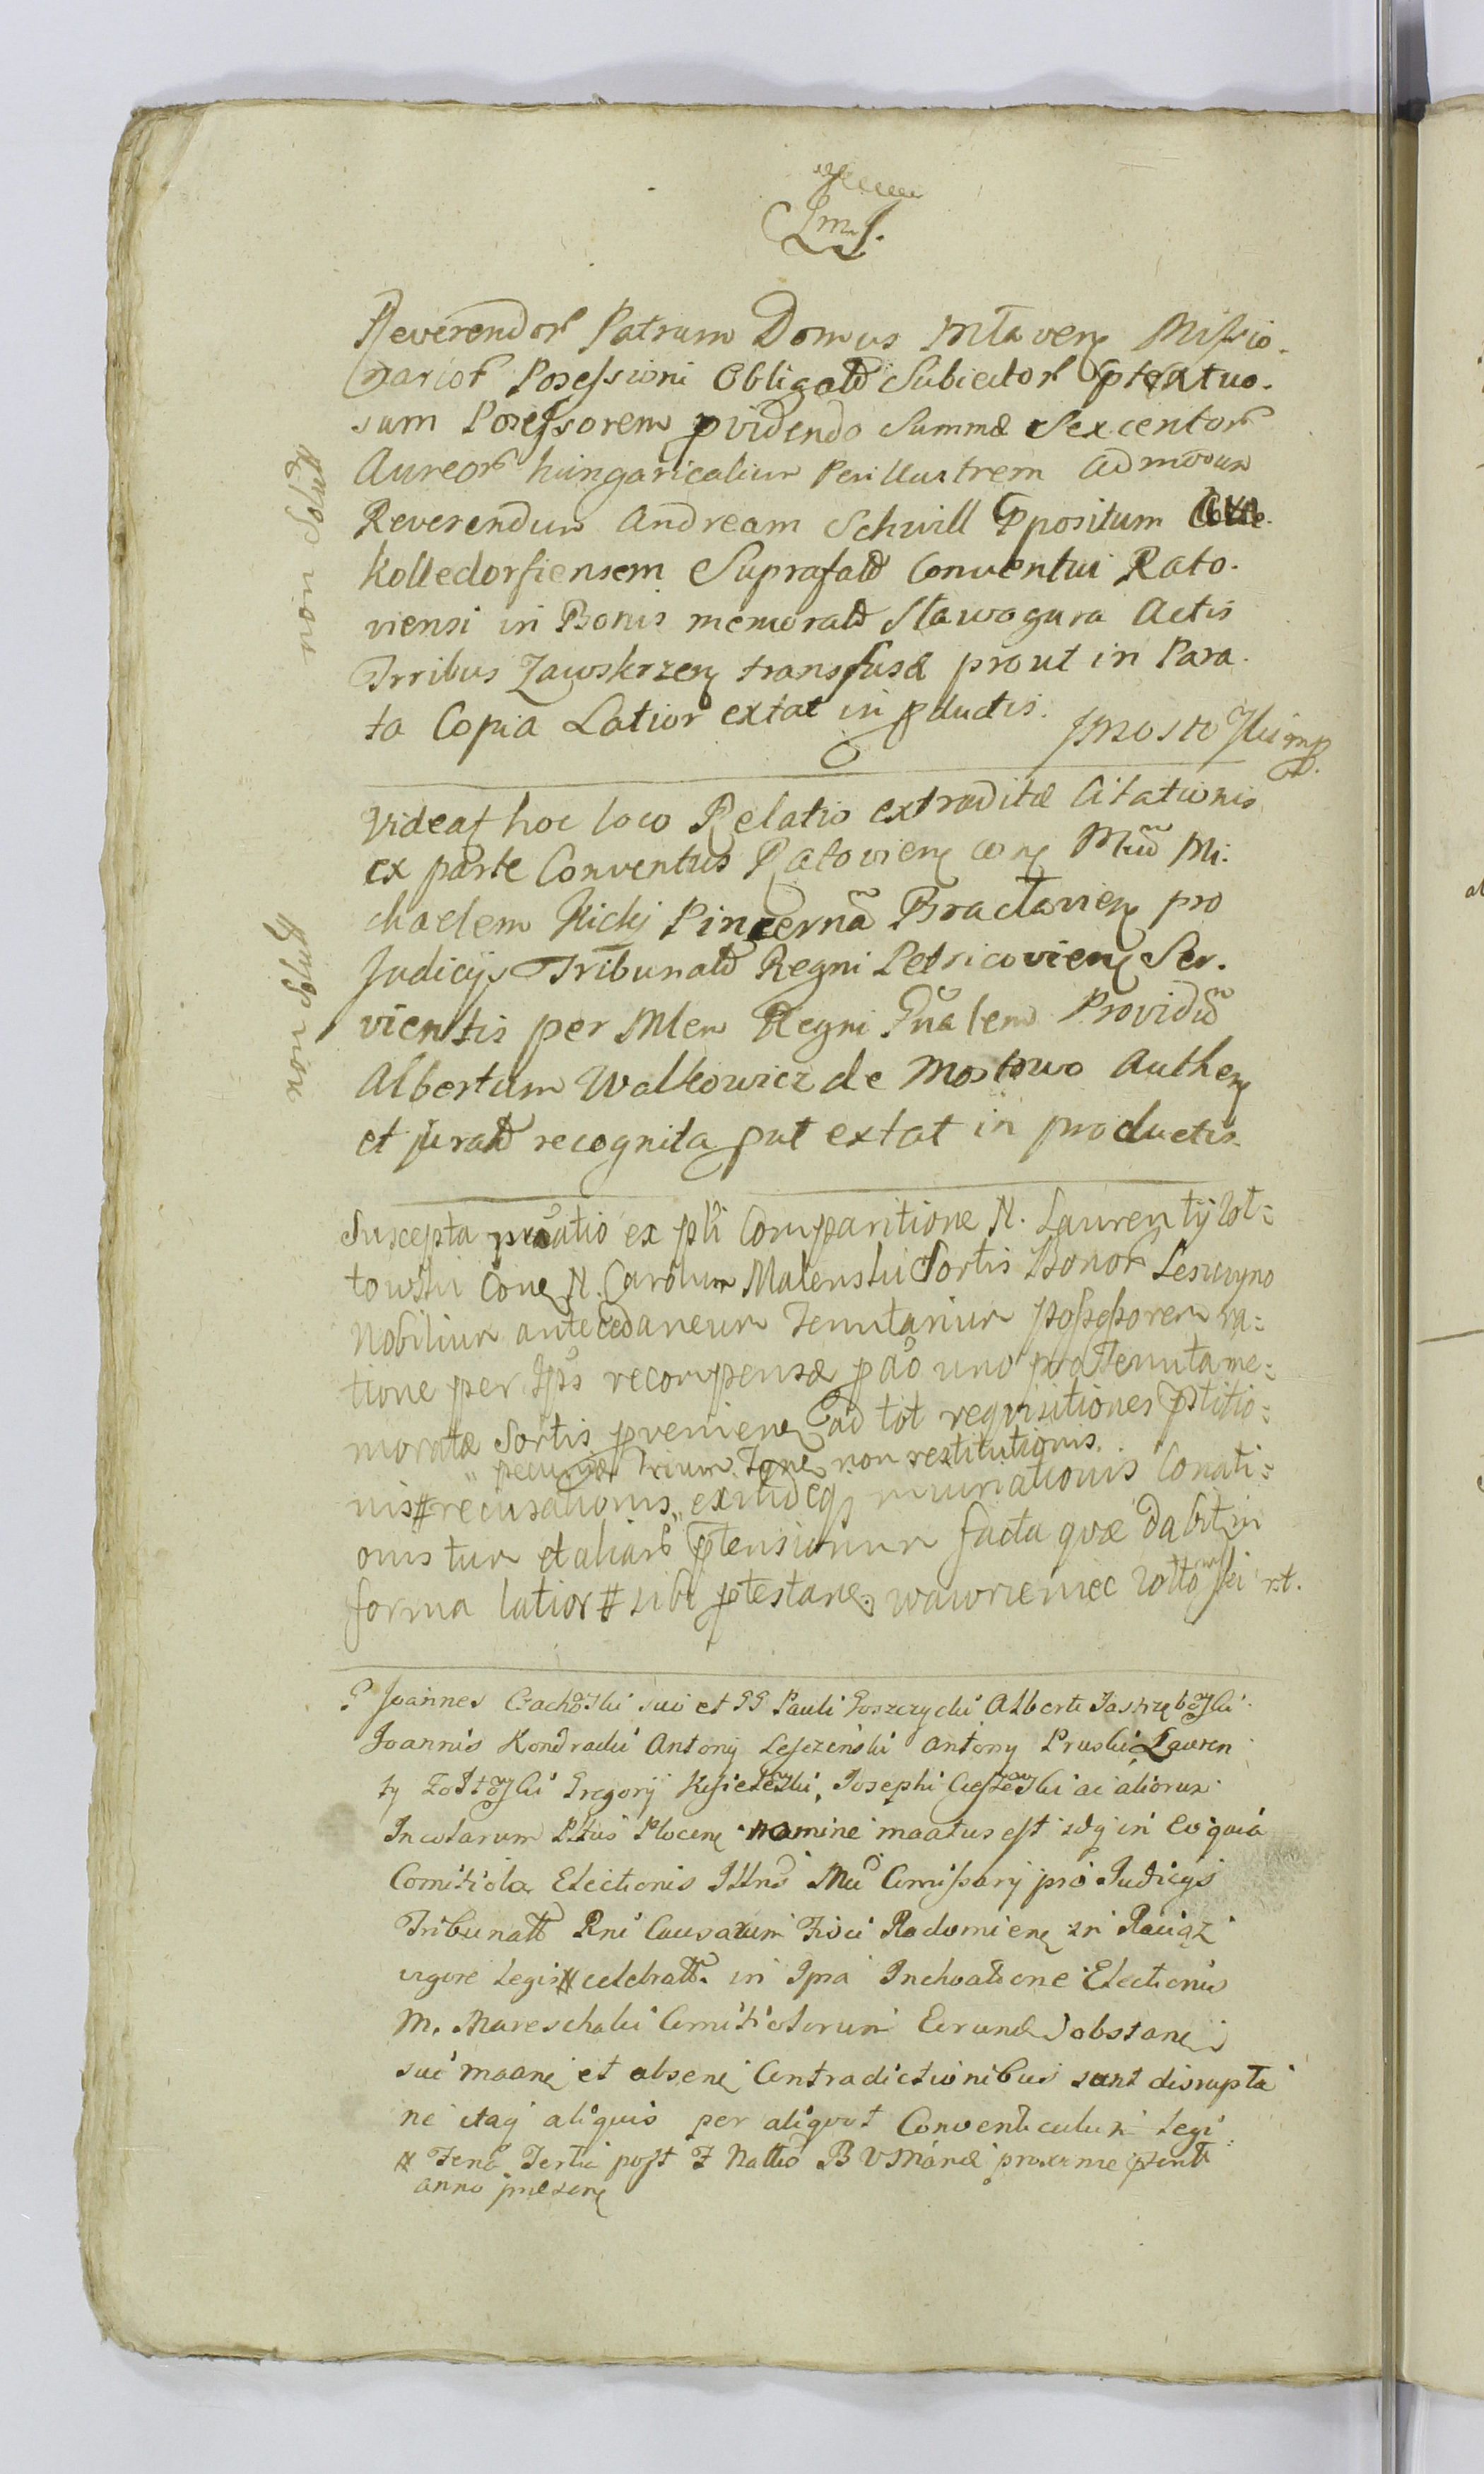 Reverendor Patrum Domus Mław Missio-
narior Posessioni Obligat Subiector ptextuo-
sum Posessorem pvidendo Summæ Sexcentor
Aureor hungaricalium Perillustrem admodum
Reverendum Andream Schvill Ppositum
Kolledorfiensem Suprafat Conventui Rato-
viensi in Bonis memorat Sławogura Actis
Trribus Zawskrzen transfusæ prout in Para-
ta Copia Latior extat in pductis.
Videat hoc loco Relatio extraditæ Citationis
ex parte Conventus Ratovien con Mcum Mi-
chaelem Kicki Pincernã Bracłavien pro
Judicijs Tribunal Regni Petricovien Ser-
vientis per Mlem Regni Gnãlem Providũ
Albertum Walkowicz de Mostowo Authen
et jurat recognita put extat in productis
non suscept
non suscept
Suscepta ex pli Comparitione N. Laurentij Zoł=
towski Con N. Carolum Malenski Sortis Bonor Leszczyno
Nobilium antecedaneum Tenutarium possessorem ra=
tione per Ips recompensæ pão uno pro Tenuta me=
moratæ Sortis pvenien ad tot requisitiones ptitio=
pecuniæ trium non restitutionis
nis # recusationis exindeq iniuriationis Conati=
onis tum et aliar ptensionum facta quæ dabit in
forma latior # sibi ptestan. Wawrzeniec Zołtowski
Joannes suo et GG Pauli Goszczycki Alberti Jastrzębowski
Joannis Kondracki Antonij Leszczinski Antony Pruski Lauren
ty Zołtowski Gregorij Josephi ac aliorum
Incolarum Pltus Plocen nomine est idq in Eo quia
Comitiola Electionis Illris Mci Comissarij pro Judicijs
Tribunal Rni Causarum Fisci Radomien in Raciąz
vigore Legis # celebrat in Ipsa Inchoatione Electionis
M. Mareschalci Comitiolorum Eorund obstan
sui et absen Contradictionibus sunt disrupta
ne itaq aliquis per aliquot Conventiculum Legi
# Feria Tertia post F Nattis B V Mariæ proxime
anno præsen